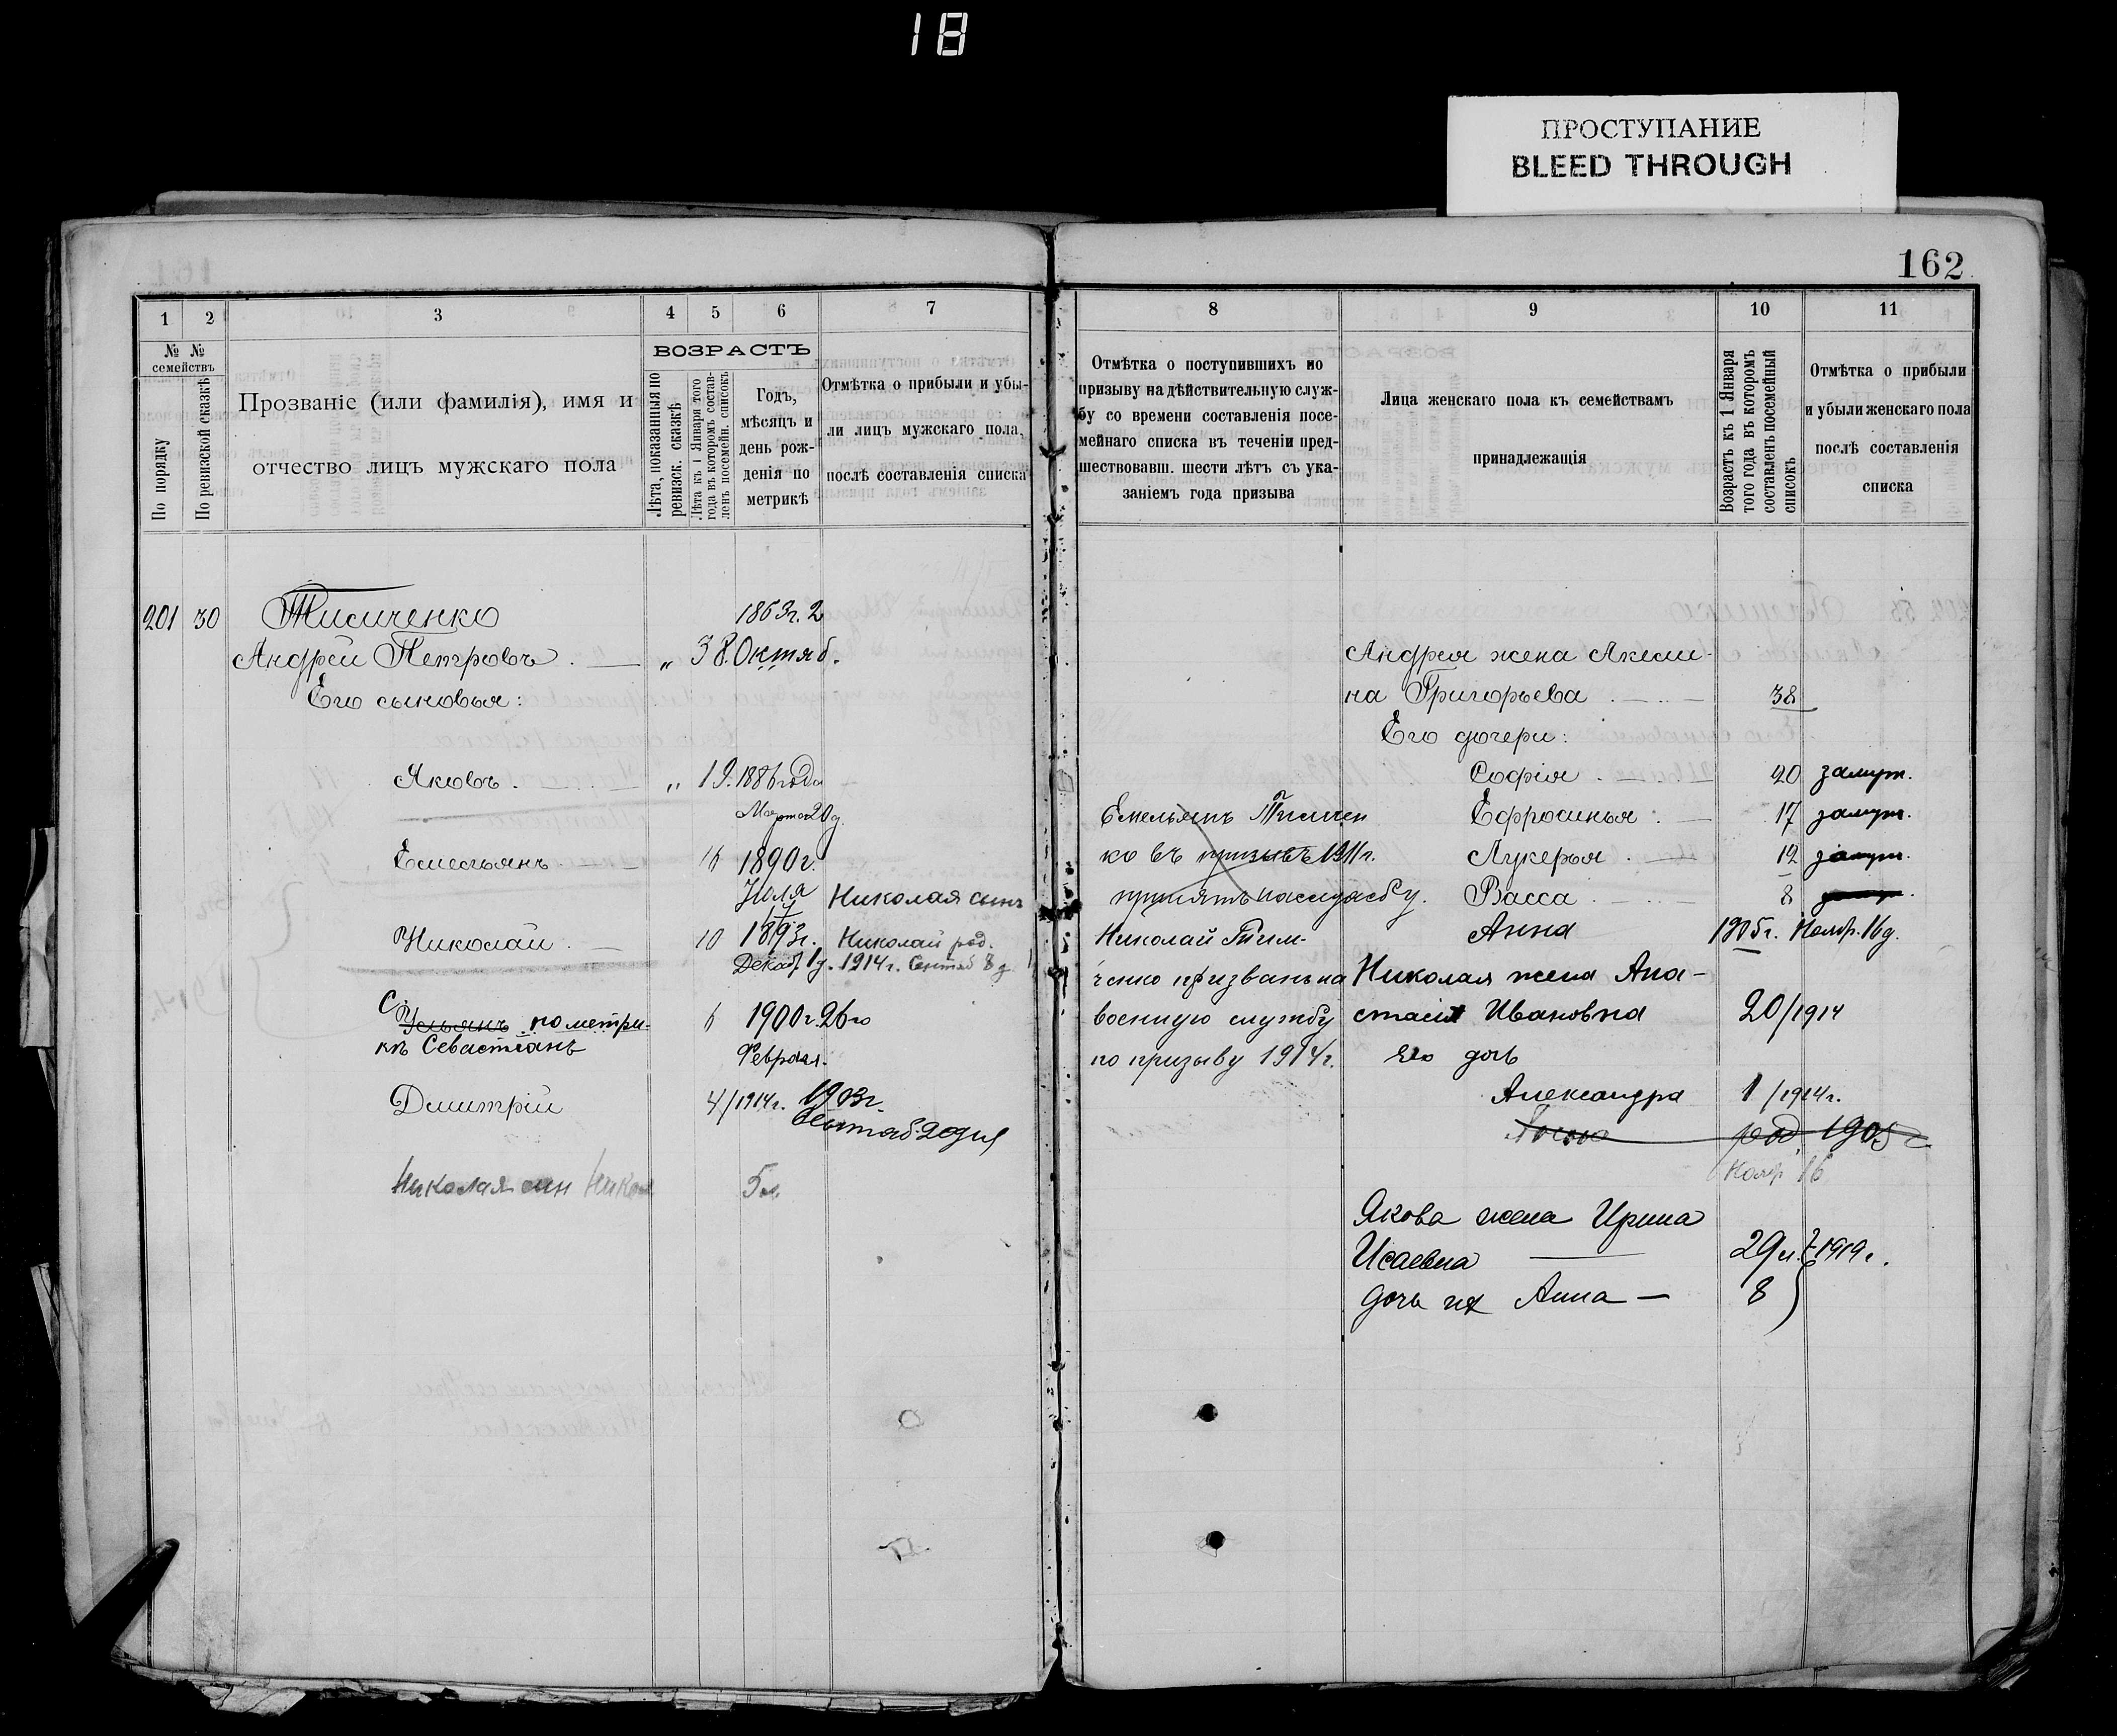 18
ПРОСТУПАНИЕ
BLEED THROUGH
162
1 2 3 4 5 6 7
№ №
семействъ
По порядку
По ревизской сказкѣ
Прозваніе (или фамилія), имя и
отчество лицъ мужскаго пола
ВОЗРАСТЪ
Лѣта, показанныя по
ревизск. сказкѣ
Лѣта къ 1 Января того
года въ которомъ состав-
ленъ посемейн. списокъ
Годъ,
мѣсяцъ и
день рож-
денія по
метрикѣ
Отмѣтка о прибыли и убы-
ли лицъ мужскаго пола
послѣ составленія списка
201 30 Тисиченко 1863г. 2
Андрей Петровъ „ 38. Октяб.
Его сыновья:
Яковъ „ 19. 1886 года
Марта 20 д.
Емельянъ 16 1890г.
Юля Николая сынъ
17
Николай 10 1893г. Николай род.
Декаб 1 д. 1914г. Сентяб 8 д
С
Ульянъ по метри-
къ Севастіанъ 6 1900г. 26го
Феврал.
Дмитрій 4/1914г. 1903г.
Сентяб. 20 дня
Николая син Никол 5 л.
8 9 10 11
Отмѣтка о поступившихъ по
призыву на дѣйствительную служ-
бу со времени составленія посе-
мейнаго списка въ теченіи пред-
шествовавш. шести лѣтъ съ ука-
заніемъ года призыва
Лица женскаго пола къ семействамъ
принадлежащія
Возрастъ къ 1 Января
того года въ которомъ
составленъ посемейный
списокъ
Отмѣтка о прибыли
и убыли женскаго пола
послѣ составленія
списка
Андрея жена Акили-
на Григорьева 38
Его дочери:
Софія 20 замуж.
Емельянъ Тисичен Ефросинья 17 замуж.
ко въ призывъ 1911г. Лукерья 12 замуж.
принятъ на службу. Васса 8
Николай Тиси- Анна 1905г. Нояб. 16 д.
ченко призванъ на Николая жена Ана-
военную службу стасія Ивановна 20/1914
по призыву 1914г. Его дочь
Александра 1/1914г.
род. 1905 г
Нояб 16
Якова жена Ирина
Исаевна 29 л. 1919г.
дочь их Анна 8